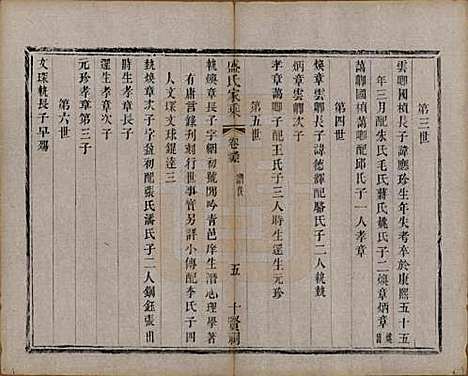 第三世
雲卿國楨長子諱應珍生年失考卒於康熙五十五
年三月配朱氏毛氏蔣氏姚氏子二煥章炳章
萬卿國楨次子配邱氏子一人孝章
第四世
煥章雲卿長子諱德鐸配駱氏子二人執兢
炳章雲卿次子
孝章萬卿子配王氏子三人時生還生元珍
第五世
盛氏家乘
卷
五
十賢祠
執煥章長子字絅初號閒吟青邑庠生潛心理學著
有庸言錄刊刻行世事實另詳小傳配李氏子四
人文琛文球錕逵三
兢煥章次子字益初配張氏潘氏子二人鋼鈺張出
時生孝章長子
還生孝章次子
元珍孝章第三子
第六世
文琛執長子早殤